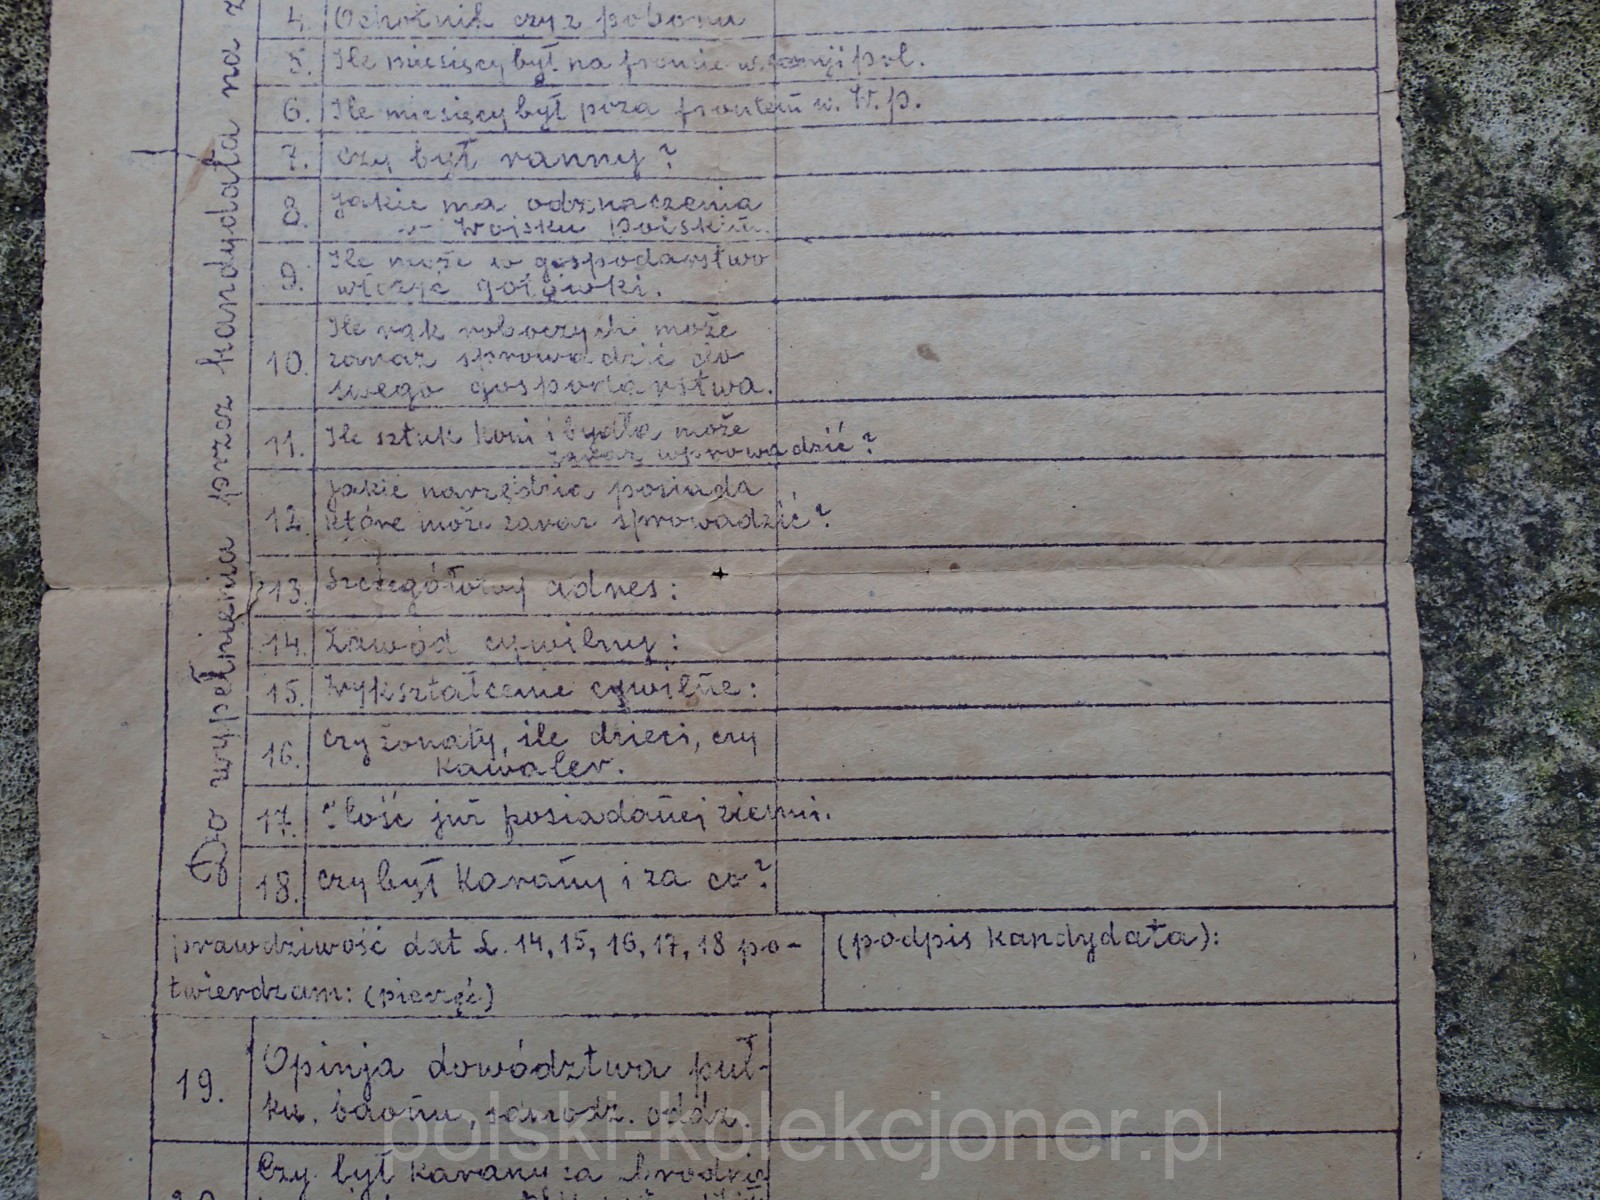 Do wypełnienia przez kandydata na z
4. Ochotnik czy z poboru
5. Ile miesięcy był na froncie w armji pol.
6. Ile miesięcy był poza frontem w. W.p.
7. czy był ranny?
8. Jakie ma odznaczenia
w Wojsku Polskim.
9. Ile może w gospodarstwo
włożyć gotówki.
10. Ile rąk roboczych może
zaraz sprowadzić do
swego gospodarstwa.
11. Ile sztuk koni i bydła może
zaraz wprowadzić?
12. Jakie narzędzia posiada
które może zaraz sprowadzić?
13. Szczegółowy adres:
14. Zawód cywilny:
15. Wykształcenie cywilne:
16. czy żonaty, ile dzieci, czy
kawaler.
17. Ilość już posiadanej ziemi.
18. czy był karany i za co?
prawdziwość dat L. 14, 15, 16, 17, 18 po-
twierdzam: (pieczęć)
(podpis kandydata):
19. Opinja dowództwa puł-
ku, baonu, samodz. oddz.
Czy był karany za
polski-kolekcjoner.pl